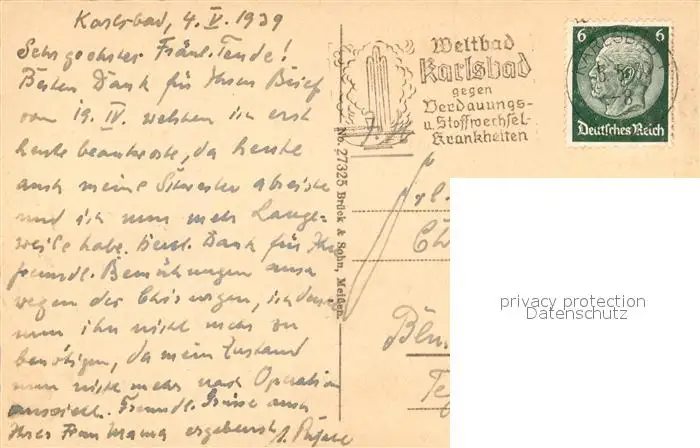 Karlsbad, 4. V. 1939
Sehr geehrtes Fräul. Tende!
Besten Dank für Ihren Brief
vom 19. IV. welchen ich erst
heute beantworte, da heute
auch meine Schwester abreiste
und ich nun mehr Lange-
weile habe. Herzl. Dank für Ihre
freundl. Bemühungen
wegen des Chirurgen, ich denke
nun ihn nicht mehr zu
benötigen, da mein Zustand
nun nicht mehr nach Operation
aussieht. Freundl. Grüsse auch
Ihrer Frau Mama ergebenst
No. 27325 Brück & Sohn, Meißen.
Weltbad
Karlsbad
gegen
Verdauungs-
u. Stoffwechsel-
Krankheiten
KARLSBAD
6 6
Deutsches Reich
Frl.
Ch
Blu
Te
privacy protection
Datenschutz